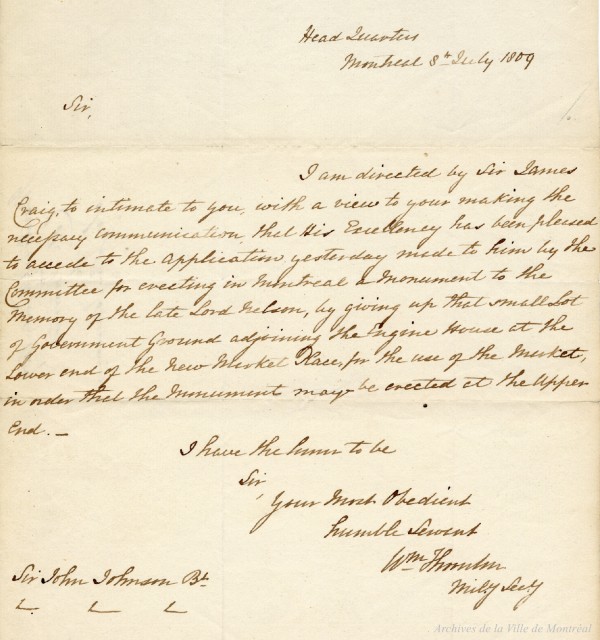 Head Quarters
Montreal 8th July 1809
Sir,
I am directed by Sir James
Craig, to intimate to you, with a view to your making the
necessary communication, that His Excellency has been pleased
to accede to the Application yesterday made to him by the
Committee for erecting in Montreal a Monument to the
Memory of the late Lord Nelson, by giving up that small Lot
of Government Ground adjoining the Engine House at the
Lower end of the New Market Place, for the use of the Market,
in order that the Monument may be erected at the Upper
End. —
I have the honor to be
Sir,
Your Most Obedient
humble Servant
Wm
Mily Secy
Sir John Johnson Bt.
Archives de la Ville de Montréal